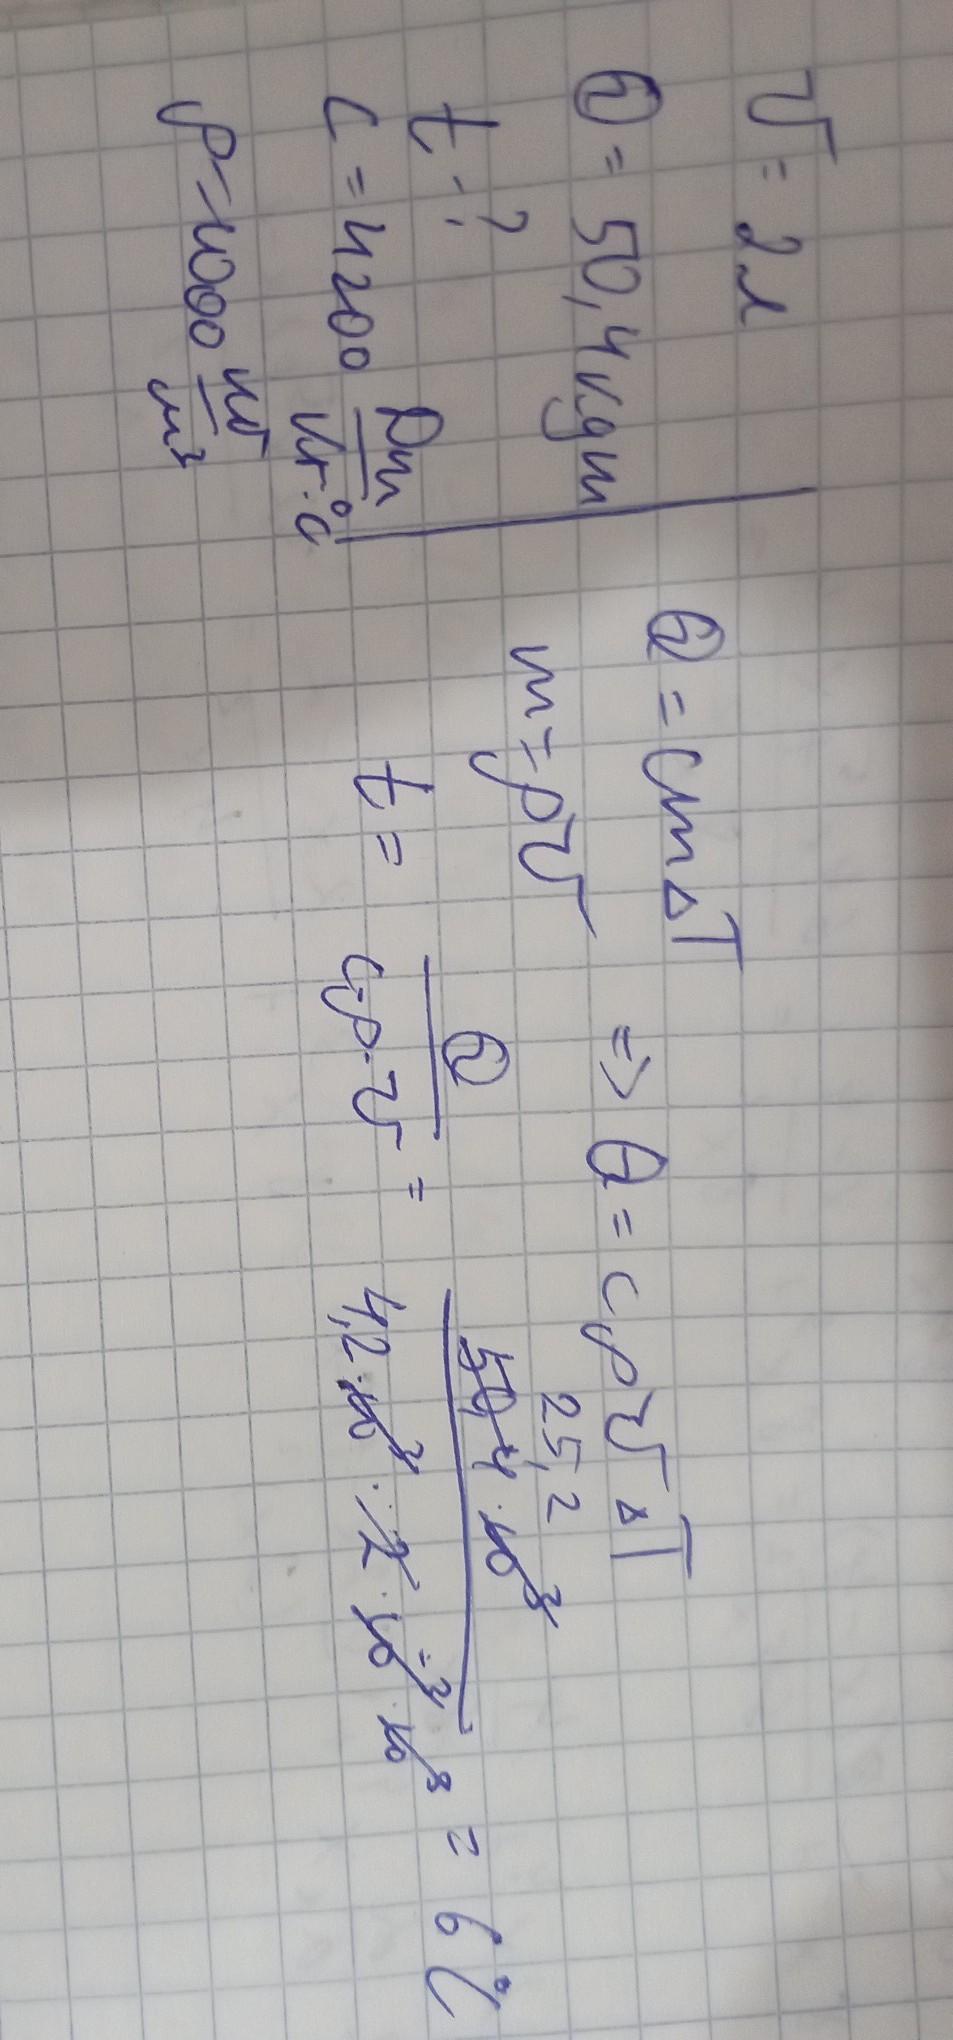 V = 2л
Q = 50,4 кДж
t - ?
c = 4200 Дж/кг·°C
ρ = 1000 кг/м³
Q = cmΔT
m = ρV
⇒ Q = cρVΔT
t = Q/c·ρ·V = 50,4·10³/4,2·10³·2·10⁻³·10³ = 6°C
25,2